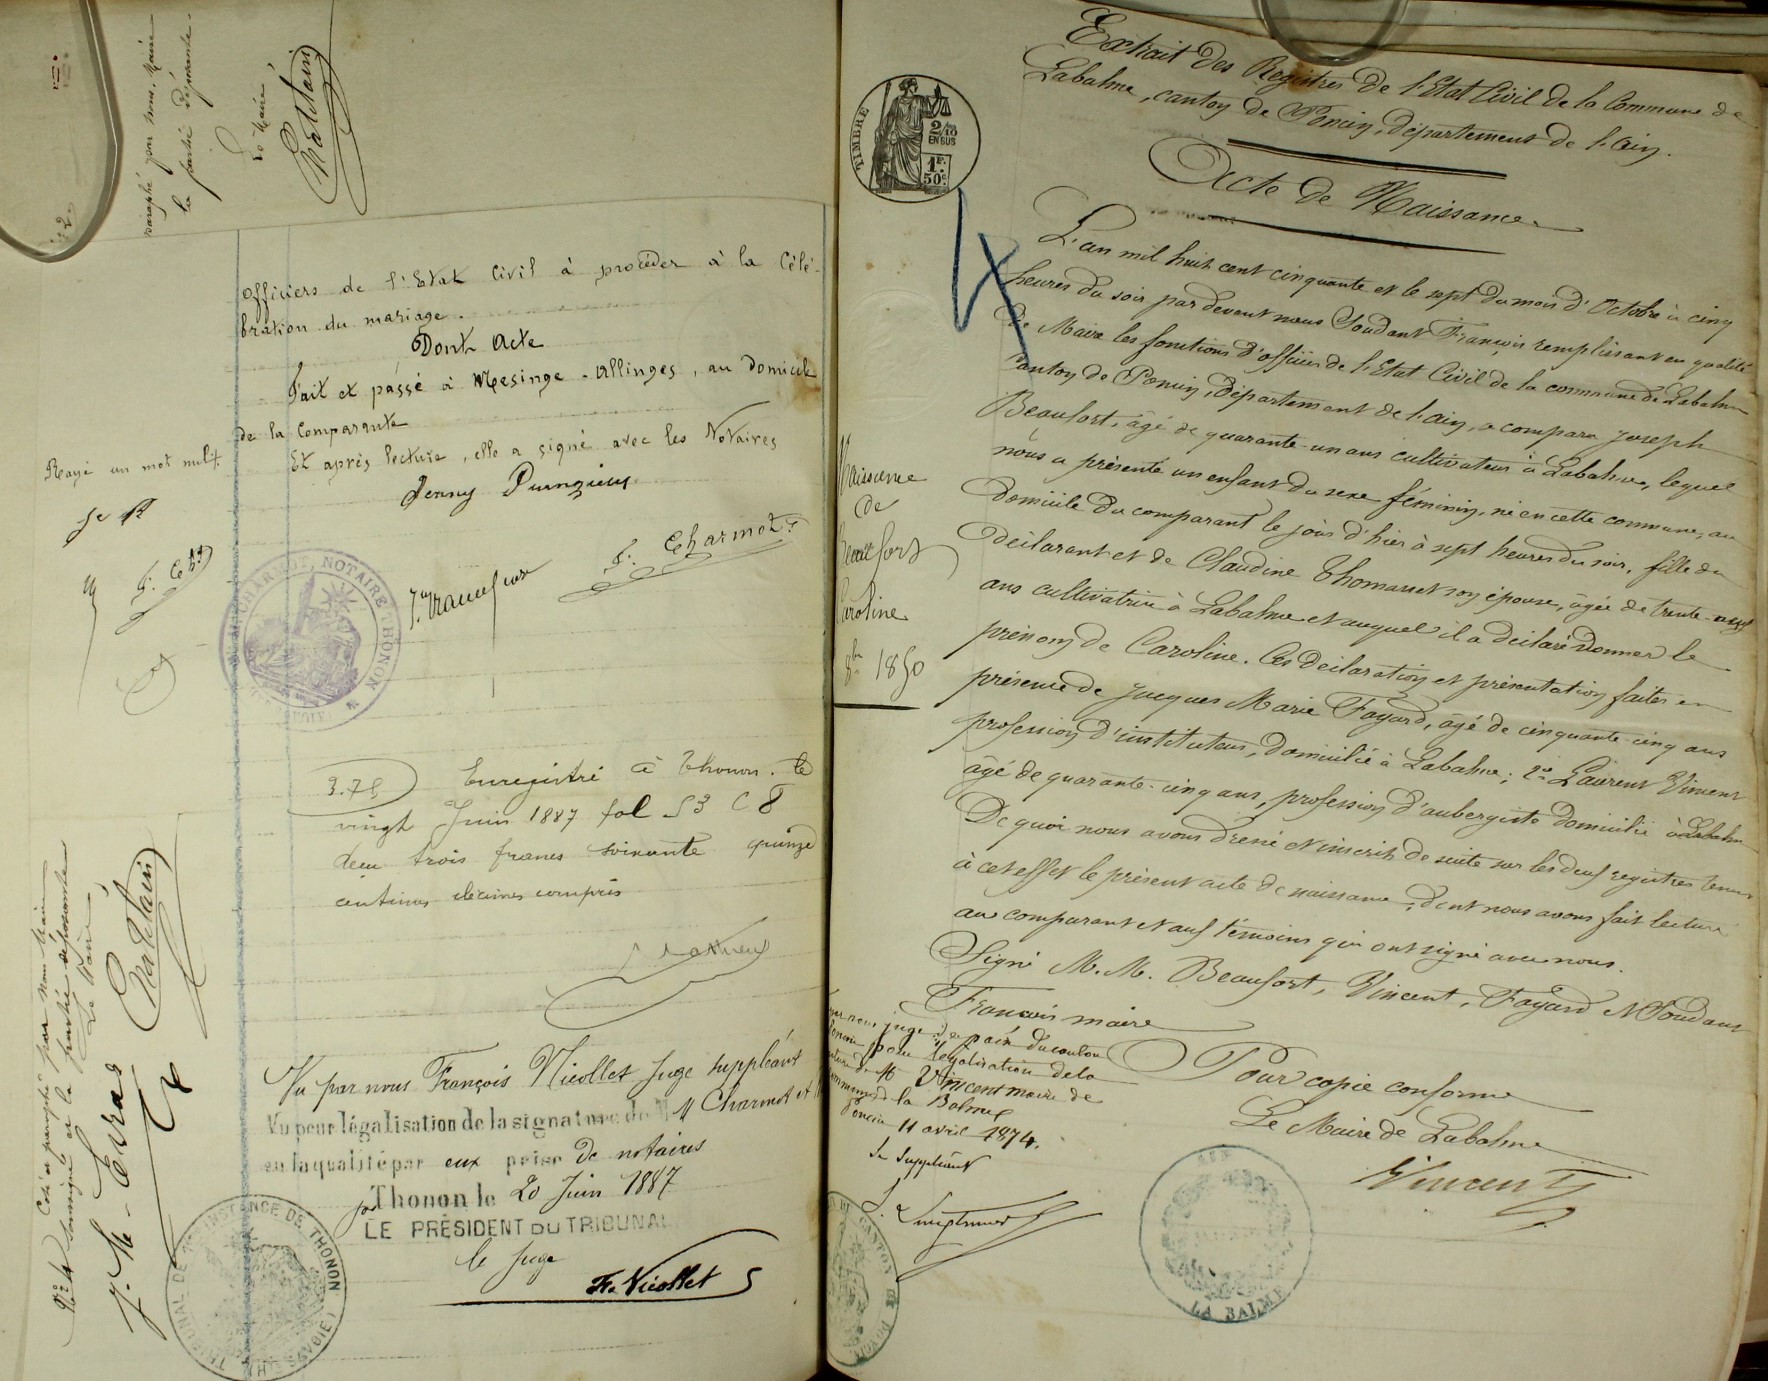 paraphé par nous, Maire
la partie déposante
Le Maire
officiers de l'Etat Civil à procéder à la Célé-
bration du mariage.
Dont Acte
Fait et passé à Mesinge-Allinges, au domicile
de la Comparante
Et après lecture, elle a signé avec les Notaires
Rayé un mot nul
Jenny
F. Charmot
CHARMOT, NOTAIRE THONON
3.75
Enregistré à Thonon le
vingt Juin 1887 fol 53 C 8
trois francs soixante quinze
centimes décimes compris
Vu par nous François Nicollet Juge suppléant
Vu pour légalisation de la signature de M Charmot et
en la qualité par eux prise de notaires
Thonon le 20 Juin 1887
LE PRÉSIDENT DU TRIBUNAL
le Juge
Fs. Nicollet
TRIBUNAL DE 1RE INSTANCE DE THONON (HTE SAVOIE)
Coté et paraphé par nous Maire
soussigné et la partie déposante
Le Maire
Extrait des Registres de l'Etat Civil de la Commune de
Labalme, canton de Poncin, département de l'Ain.
TIMBRE
2/10
EN SUS
1F.
50C.
Acte de Naissance
L'an mil huit cent cinquante et le sept du mois d'Octobre à cinq
heures du soir par devent nous Soudant François remplissant en qualité
de Maire les fonctions d'officier de l'Etat Civil de la commune de Labalme
Canton de Poncin, département de l'Ain, a comparu Joseph
Beaufort, âgé de quarante-un ans cultivateur à Labalme, lequel
nous a présenté un enfant du sexe féminin, né en cette commune, au
domicile du comparant le jour d'hier à sept heures du soir, fille du
déclarant et de Claudine Thomasset son épouse, âgée de trente-neuf
ans cultivatrice à Labalme et auquel il a déclaré donner le
prénom de Caroline. Ces déclaration et présentation faites en
présence de Jacques Marie Fayard, âgé de cinquante-cinq ans
profession d'instituteur, domicilié à Labalme; 2° Laurent Vincent
âgé de quarante-cinq ans, profession d'aubergiste domicilié à Labalme
De quoi nous avons dressé et inscrit de suite sur les deux registres tenus
à cet effet le présent acte de naissance, dont nous avons fait lecture
au comparant et aux témoins qui ont signé avec nous.
Signé M.M. Beaufort, Vincent, Fayard et Soudant
François maire
Naissance
de
Beaufort
Caroline
8bre 1850
Pour copie conforme
Le Maire de Labalme
Vincent
LA BALME
juge de paix du canton
Poncin pour légalisation de la
M Vincent maire de
la Balme
Poncin 11 avril 1874.
Le Suppléant